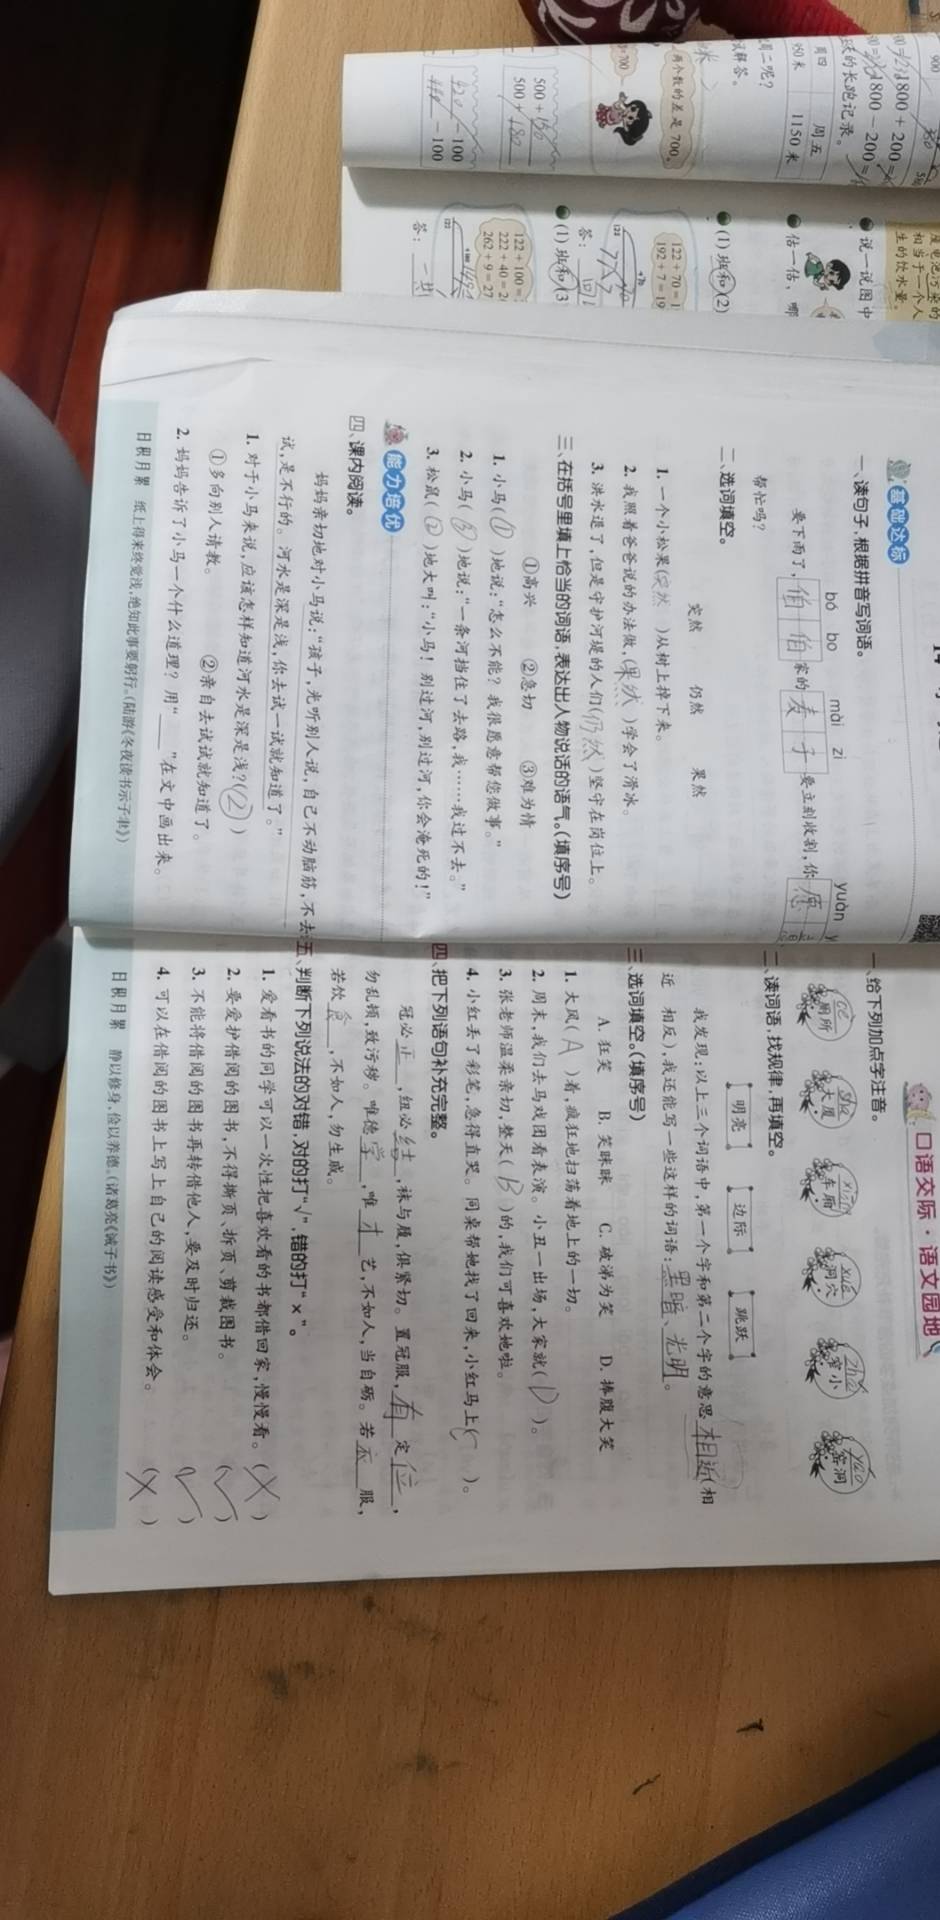 基础达标
一、读句子,根据拼音写词语。
bó bo mài zi yuàn
要下雨了,伯伯家的麦子要立刻收割,你愿
帮忙吗?
二、选词填空。
突然 仍然 果然
1. 一个小松果(突然)从树上掉下来。
2. 我照着爸爸说的办法做,(果然)学会了滑冰。
3. 洪水退了,但是守护河堤的人们(仍然)坚守在岗位上。
三、在括号里填上恰当的词语,表达出人物说话的语气。(填序号)
①高兴 ②急切 ③难为情
1. 小马(①)地说:“怎么不能?我很愿意帮您做事。”
2. 小马(③)地说:“一条河挡住了去路,我……我过不去。”
3. 松鼠(②)地大叫:“小马!别过河,别过河,你会淹死的!”
能力培优
四、课内阅读。
妈妈亲切地对小马说:“孩子,光听别人说,自己不动脑筋,不去
试,是不行的。河水是深是浅,你去试一试就知道了。”
1. 对于小马来说,应该怎样知道河水是深是浅?(②)
①多向别人请教。 ②亲自去试试就知道了。
2. 妈妈告诉了小马一个什么道理?用“____”在文中画出来。
日积月累 纸上得来终觉浅,绝知此事要躬行。(陆游《冬夜读书示子聿》)
口语交际·语文园地
一、给下列加点字注音。
cè xià xiāng xué zhǎi yáo
厕所 大厦 车厢 洞穴 窄小 窑洞
二、读词语,找规律,再填空。
明亮 边际 跳跃
我发现:以上三个词语中,第一个字和第二个字的意思相近(相
近 相反),我还能写一些这样的词语:黑暗、光明。
三、选词填空。(填序号)
A. 狂笑 B. 笑眯眯 C. 破涕为笑 D. 捧腹大笑
1. 大风(A)着,疯狂地扫荡着地上的一切。
2. 周末,我们去马戏团看表演。小丑一出场,大家就(D)。
3. 张老师温柔亲切,整天(B)的,我们可喜欢她啦。
4. 小红丢了彩笔,急得直哭。同桌帮她找了回来,小红马上(C)。
四、把下列语句补充完整。
冠必正,纽必结,袜与履,俱紧切。置冠服,有定位,
勿乱顿,致污秽。唯德学,唯才艺,不如人,当自砺。若衣服,
若饮食,不如人,勿生戚。
五、判断下列说法的对错,对的打“√”,错的打“×”。
1. 爱看书的同学可以一次性把喜欢看的书都借回家,慢慢看。(×)
2. 要爱护借阅的图书,不得撕页、折页、剪裁图书。(√)
3. 不能将借阅的图书再转借他人,要及时归还。(√)
4. 可以在借阅的图书上写上自己的阅读感受和体会。(×)
日积月累 静以修身,俭以养德。(诸葛亮《诫子书》)
1800+200=
1800-200=
米的长跑记录。
周四 周五
950米 1150米
周二呢?
两个数的差是700。
500+150
500+180
420-100
-100
生的饮水量。
相当于一个人
说一说图中
估一估,哪
(1) 班和(2)
122+70=1
192+7=19
答:
(1) 班和(3
122+100=
222+40=2
262+9=27
答: